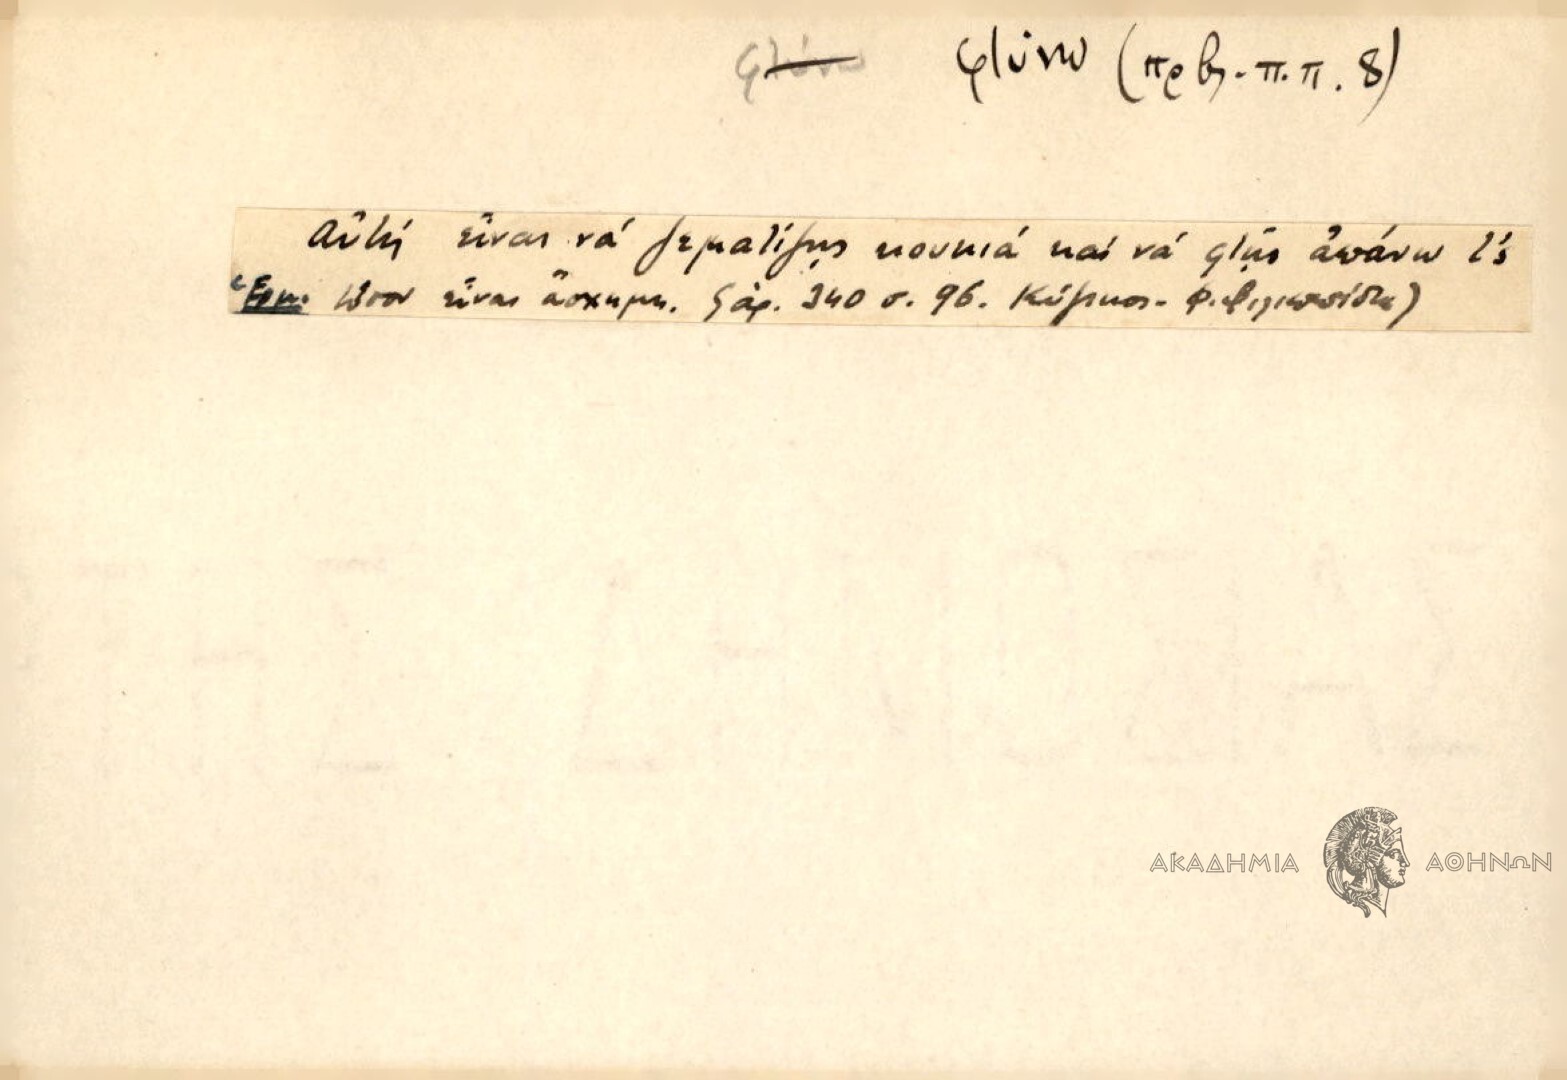 φτύνω φτύνω (πρβ. - π.π. 8)
Αὐτὴ εἶναι νά ζεματίζῃς κουκιά καί νά φτῇς ἀπάνω τς
Ἑρμ. τόσον εἶναι ἄσχημη. (ἀρ. 340 σ. 96. Κύζικος -
ΑΚΑΔΗΜΙΑ ΑΘΗΝΩΝ